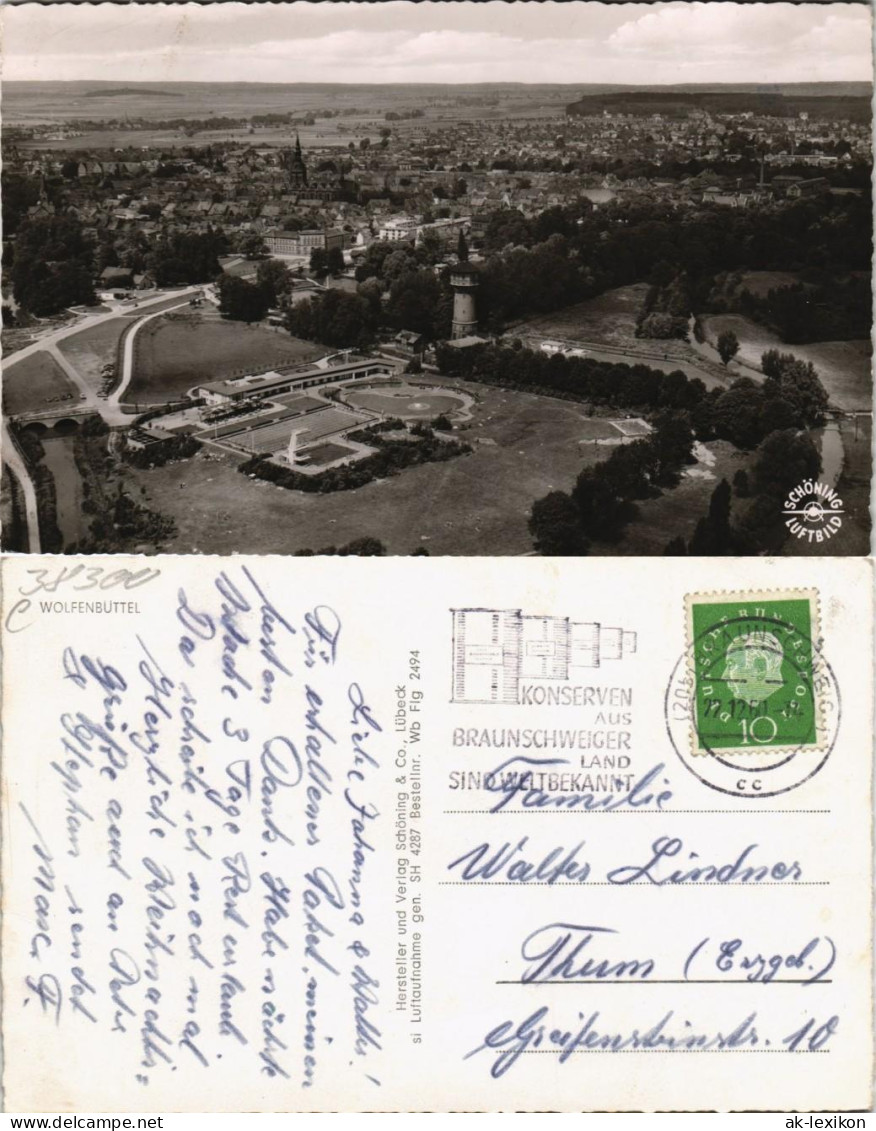 SCHÖNING
LUFTBILD
38300
C WOLFENBÜTTEL
Liebe Johanna & Walter!
Für erhaltenes Paket, meinen
besten Dank. Habe nächste
Woche 3 Tage Rest urlaub
Da schreibe ich noch mal
Herzliche Weihnachts=
Grüße auch an
& Stephan sendet
F.
Hersteller und Verlag Schöning & Co., Lübeck
si Luftaufnahme gen. SH 4287 Bestellnr. Wb Flg 2494
KONSERVEN
AUS
BRAUNSCHWEIGER
LAND
SIND WELTBEKANNT
DEUTSCHE BUNDESPOST
10
BRAUNSCHWEIG
cc
Familie
Walter Lindner
Thum (Erzgeb.)
Greifensteinstr. 10
ak-lexikon